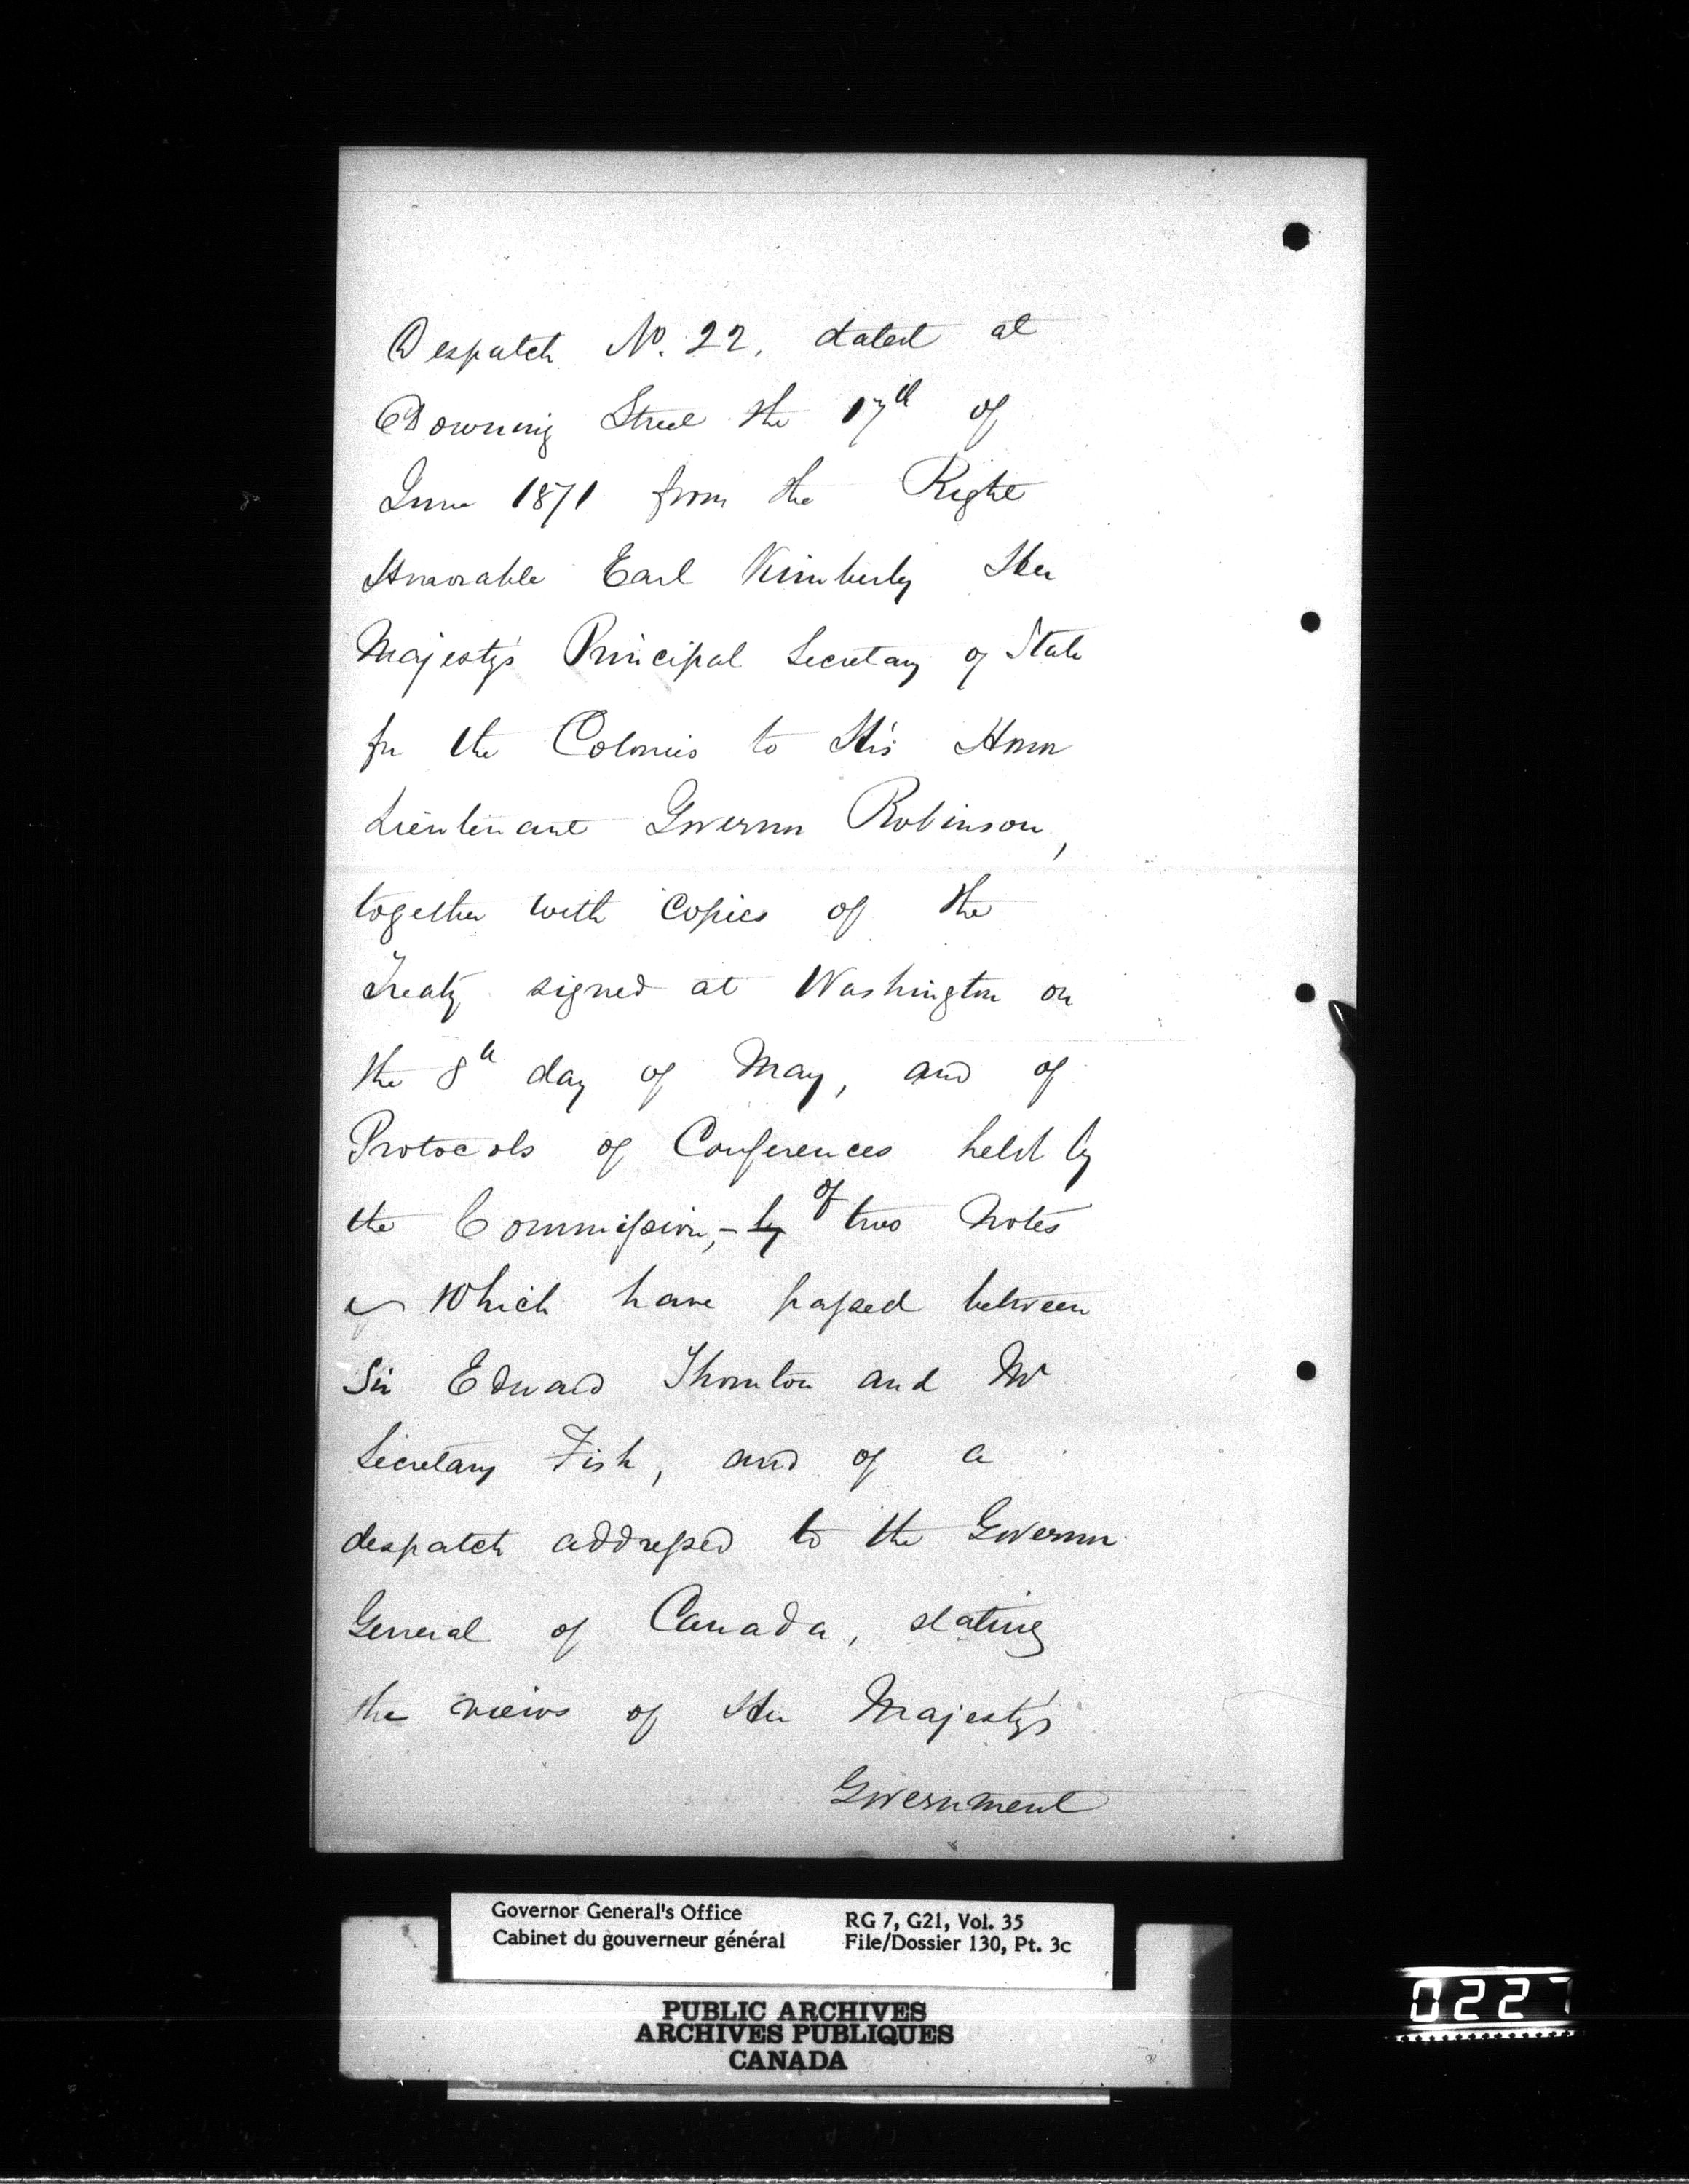 Despatch No. 22, dated at
Downing Street the 17th of
June 1871 from the Right
Honorable Earl Kimberly Her
Majesty's Principal Secretary of State
for the Colonies to His Honor
Lieutenant Governor Robinson,
together with copies of the
Treaty signed at Washington on
the 8th day of May, and of
Protocols of Conferences held by
the Commission, - by of two Notes
which have passed between
Sir Edward Thornton and Mr
Secretary Fish, and of a
despatch addressed to the Governor
General of Canada, stating
the views of Her Majesty's
Government
Governor General's Office
Cabinet du gouverneur général
RG 7, G21, Vol. 35
File/Dossier 130, Pt. 3c
PUBLIC ARCHIVES
ARCHIVES PUBLIQUES
CANADA
0227